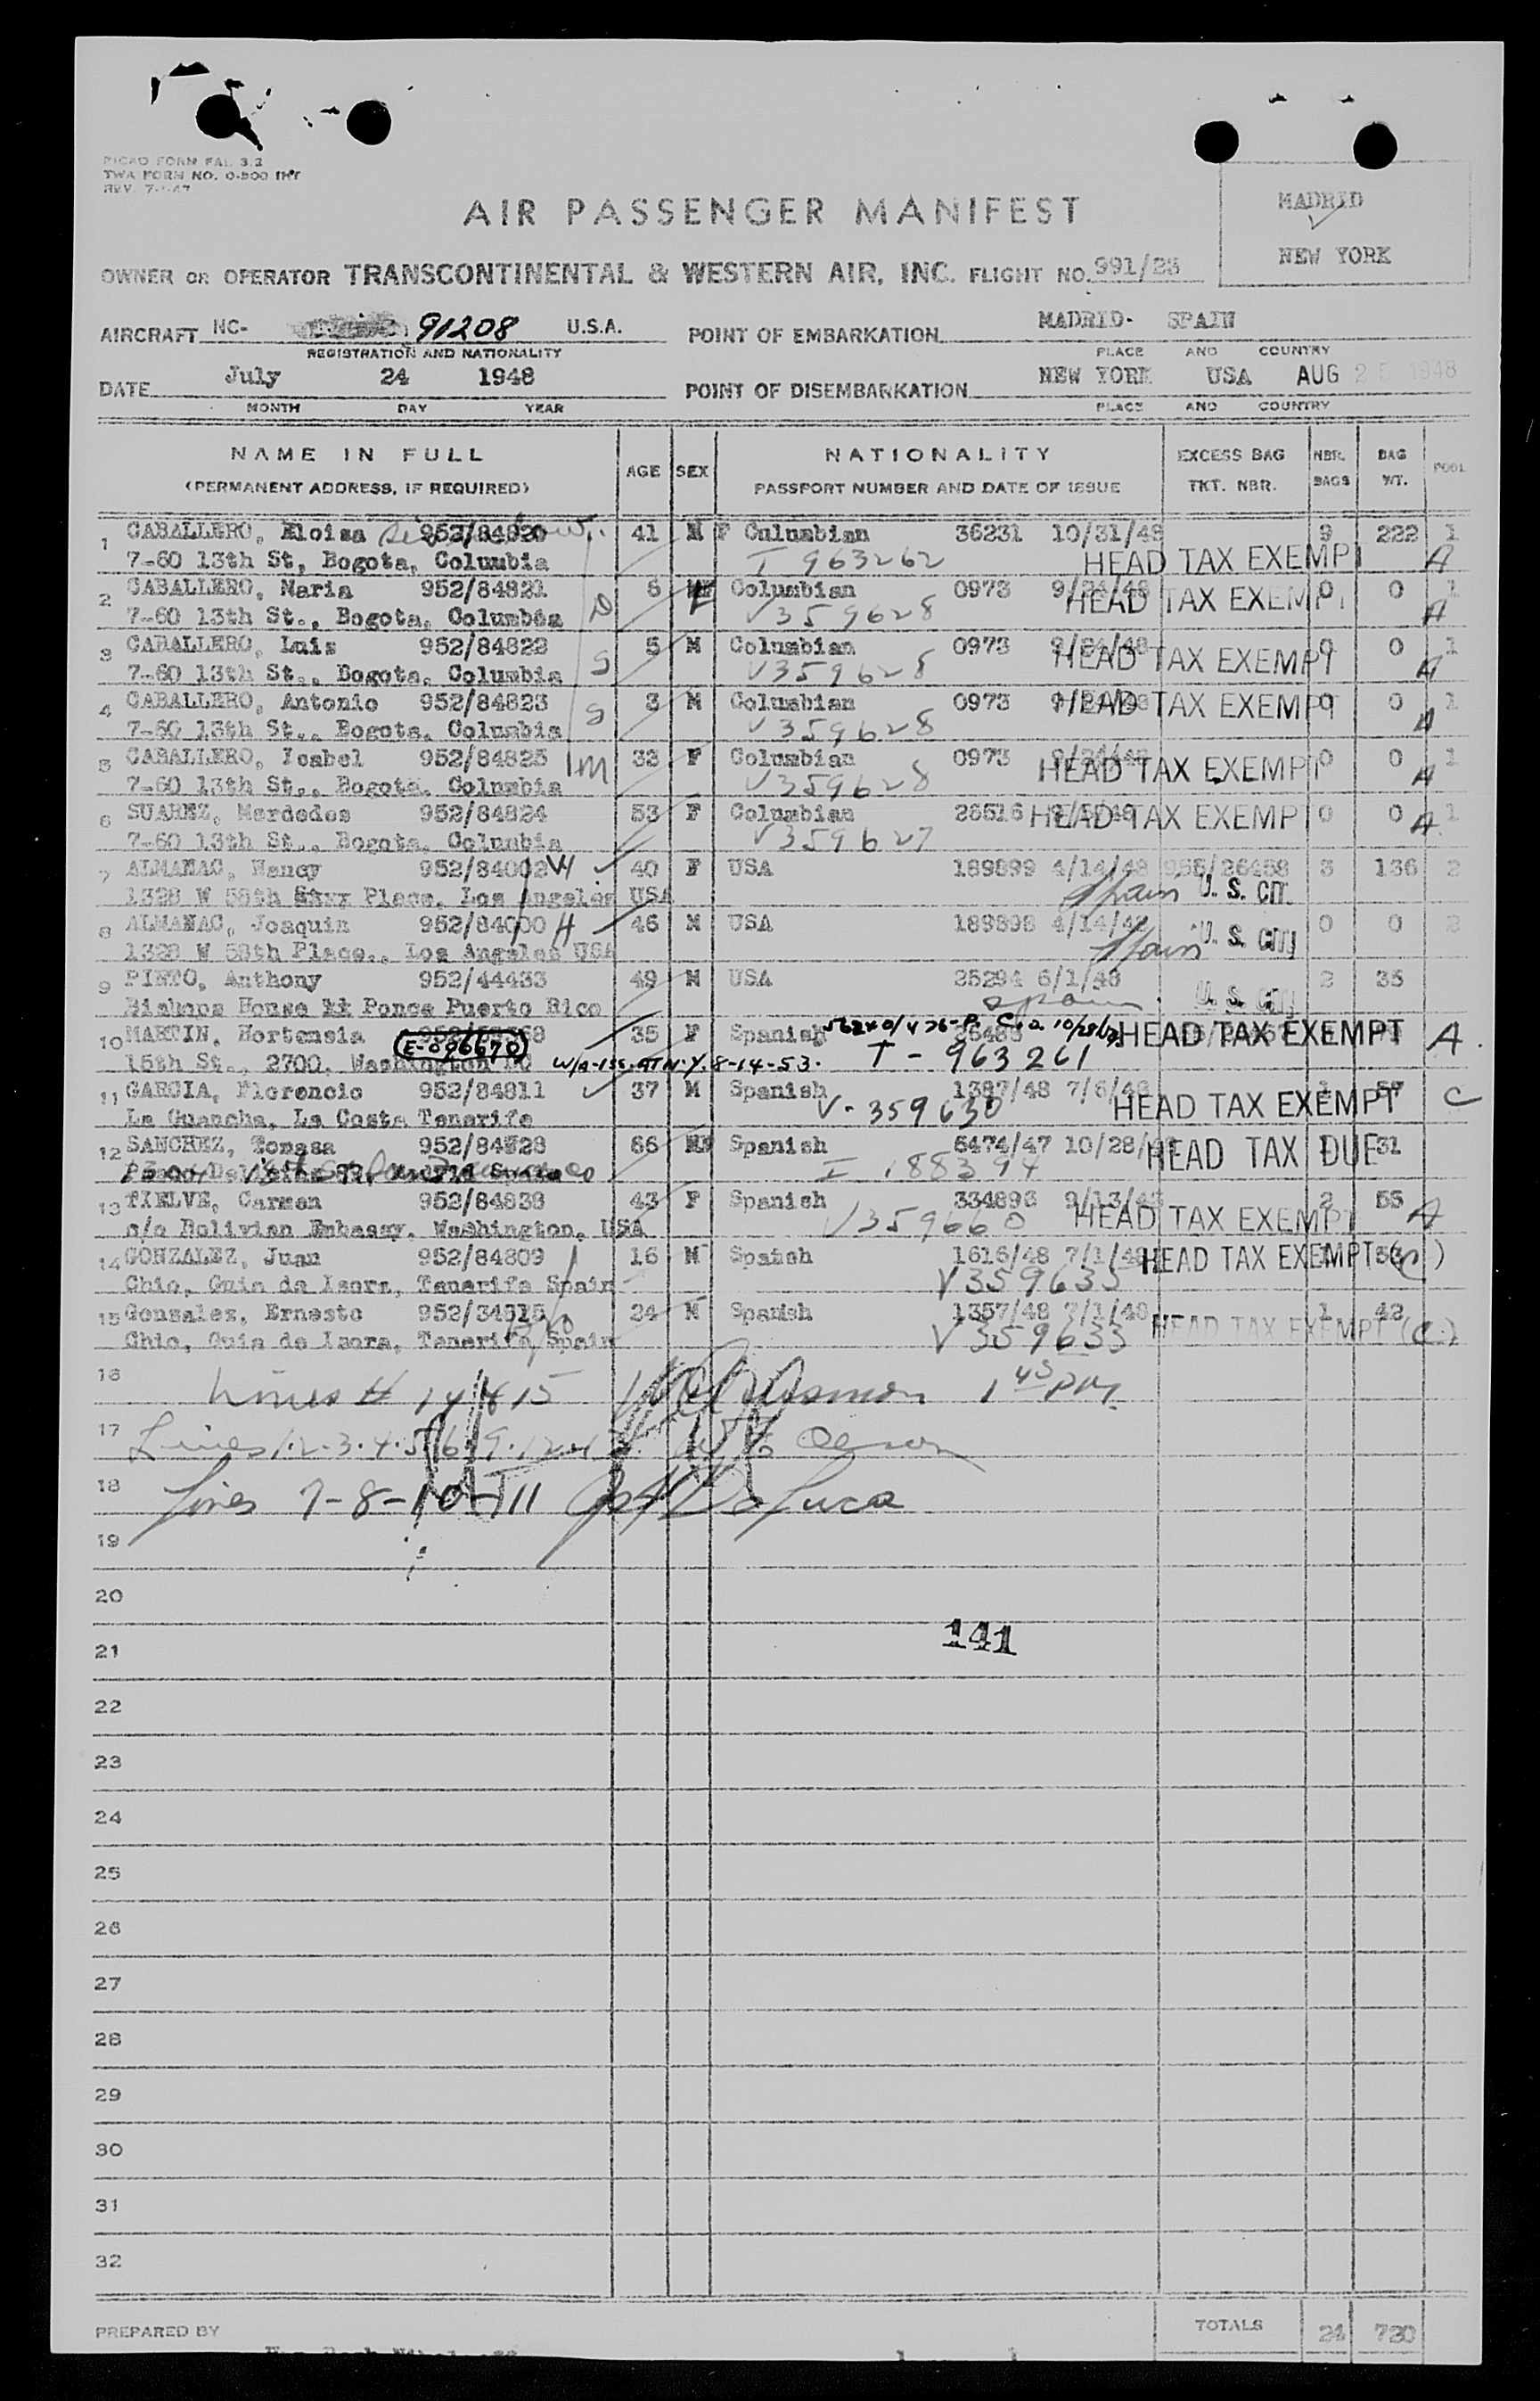 PICAO FORM FAL 3.2
TWA FORM NO. 0-500 INT
REV. 7-1-47
MADRID
NEW YORK
AIR PASSENGER MANIFEST
OWNER OR OPERATOR TRANSCONTINENTAL & WESTERN AIR, INC. FLIGHT NO. 991/23
AIRCRAFT NC- 91208 U.S.A. POINT OF EMBARKATION MADRID- SPAIN
REGISTRATION AND NATIONALITY PLACE AND COUNTRY
DATE July 24 1948 POINT OF DISEMBARKATION NEW YORK USA AUG 25 1948
MONTH DAY YEAR PLACE AND COUNTRY
NAME IN FULL AGE SEX NATIONALITY EXCESS BAG NBR. BAG POOL
(PERMANENT ADDRESS, IF REQUIRED) PASSPORT NUMBER AND DATE OF ISSUE TKT. NBR. BAGS WT.
1 CABALLERO, Eloisa 952/84820 41 F Culumbian 36231 10/31/48 9 222 1
7-60 13th St, Bogota, Columbia T 963262 HEAD TAX EXEMPT A
2 CABALLERO, Maria 952/84821 D 6 F Columbian 0973 9/24/48 0 0 1
7-60 13th St., Bogota, Columbia V359628 HEAD TAX EXEMPT A
3 CABALLERO, Luis 952/84822 S 5 M Columbian 0973 9/24/48 0 0 1
7-60 13th St., Bogota, Columbia V359628 HEAD TAX EXEMPT A
4 CABALLERO, Antonio 952/84823 S 3 M Columbian 0973 9/24/48 0 0 1
7-60 13th St., Bogota, Columbia V359628 HEAD TAX EXEMPT A
5 CABALLERO, Isabel 952/84825 M 33 F Columbian 0973 9/24/48 0 0 1
7-60 13th St., Bogota, Columbia V359628 HEAD TAX EXEMPT A
6 SUAREZ, Merdedes 952/84824 53 F Columbian 26516 HEAD TAX EXEMPT 0 0 1
7-60 13th St., Bogota, Columbia V359627 A
7 ALMANAC, Nancy 952/84002 W 40 F USA 189899 4/14/48 955/26458 3 136 2
1328 W 58th Stxx Place, Los Angeles USA Spain U. S. CIT.
8 ALMANAC, Joaquin 952/84000 H 46 M USA 189898 4/14/48 0 0 2
1328 W 58th Place., Los Angeles USA Spain U. S. CIT.
9 PINTO, Anthony 952/44433 49 M USA 25294 6/1/48 2 35
Bishops House Ponce Puerto Rico Spain U. S. CIT.
10 MARTIN, Hortensia E-096670 35 F Spanish HEAD TAX EXEMPT A
15th St., 2700, Washington DC 8-14-53. T-963261
11 GARCIA, Florencio 952/84811 37 M Spanish 1387/48 7/6/48 1 57
La Guancha, La Costa Tenerife V-359630 HEAD TAX EXEMPT C
12 SANCHEZ, Tomasa 952/84828 66 Spanish 6474/47 10/28/48 HEAD TAX DUE 1 31
I 188394
13 TIELVE, Carmen 952/84838 43 F Spanish 334896 9/13/48 2 55
c/o Bolivian Embassy, Washington, USA V359660 HEAD TAX EXEMPT A
14 GONZALEZ, Juan 952/84809 16 M Spaish 1616/48 7/1/48 HEAD TAX EXEMPT (C)
Chio, Guia de Isora, Tenerife Spain V359635
15 Gonzalez, Ernesto 24 M Spanish 1357/48 7/1/48 1 42
Chio, Guia de Isora, Tenerife Spain V359633 HEAD TAX EXEMPT (C)
16 Lines # 14 & 15 1 45 PM
17 Lines 1.2.3.4.5.6.9.12.13.
18 Lines 7-8-10-11 De Luca
19
20
141
21
22
23
24
25
26
27
28
29
30
31
32
PREPARED BY TOTALS 24 720